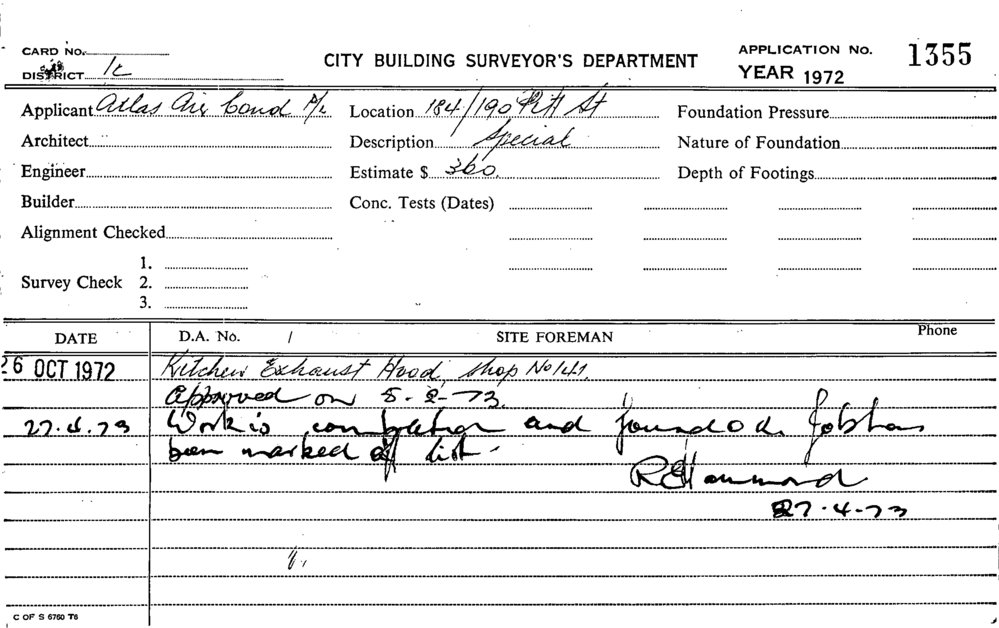 CARD No.
CITY BUILDING SURVEYOR'S DEPARTMENT
APPLICATION No. 1355
DISTRICT 1c
YEAR 1972
Applicant Atlas Air Cond P/L Location 184/190 Pitt St Foundation Pressure
Architect Description Special Nature of Foundation
Engineer Estimate $ 360. Depth of Footings
Builder Conc. Tests (Dates)
Alignment Checked
1.
Survey Check 2.
3.
DATE D.A. No. / SITE FOREMAN Phone
26 OCT 1972 Kitchen Exhaust Hood, Shop No 141.
Approved on 5-2-73.
27.4.73 Work is completion and found O.K. Job has
been marked off list.
R Hammond
27.4.73
C OF S 6760 T6